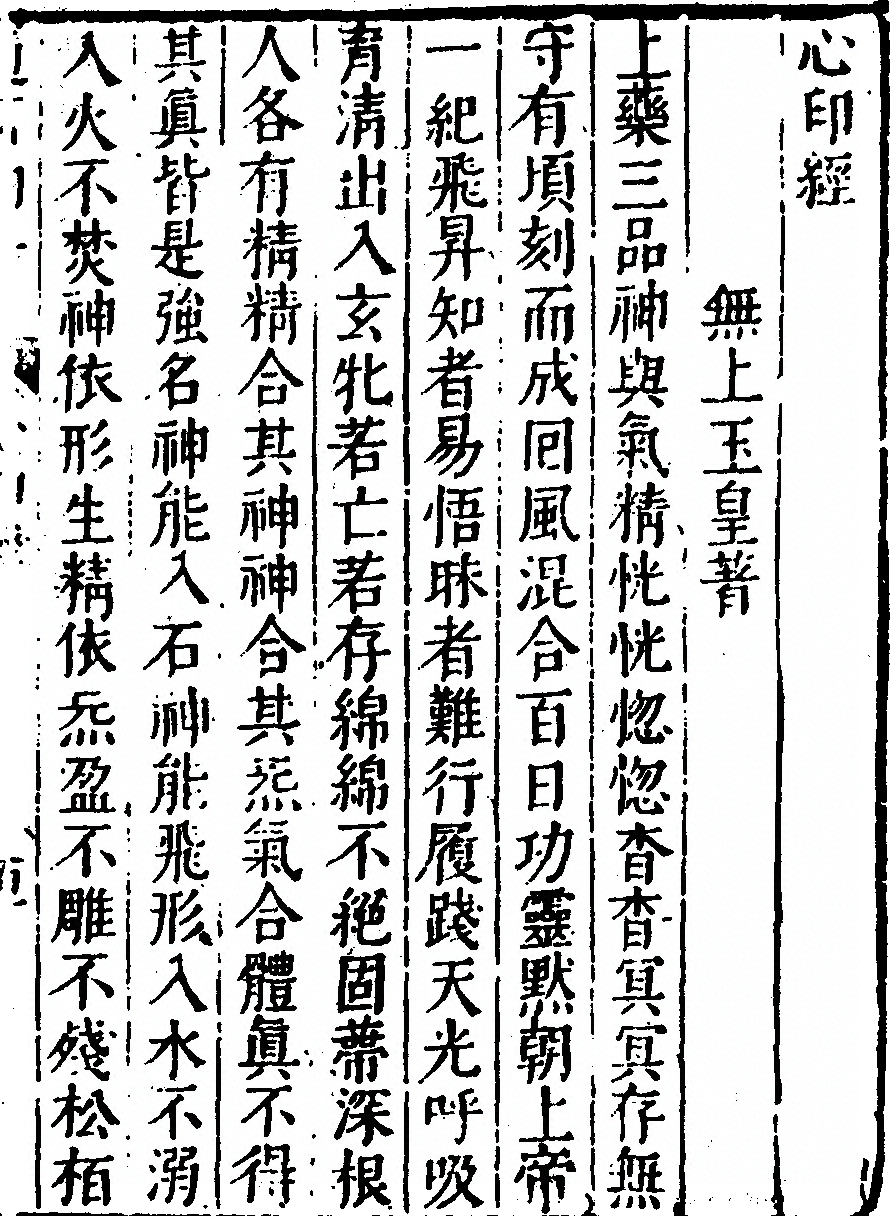 心印經
無上玉皇著
上藥三品神與氣精恍恍惚惚杳杳冥冥存無
守有頃刻而成囘風混合百日功靈默朝上帝
一紀飛昇知者易悟昧者難行履踐天光呼吸
育淸出入玄牝若亡若存綿綿不絕固蔕深根
人各有精精合其神神合其炁氣合體眞不得
其眞皆是強名神能入石神能飛形入水不溺
入火不焚神依形生精依炁盈不雕不殘松栢